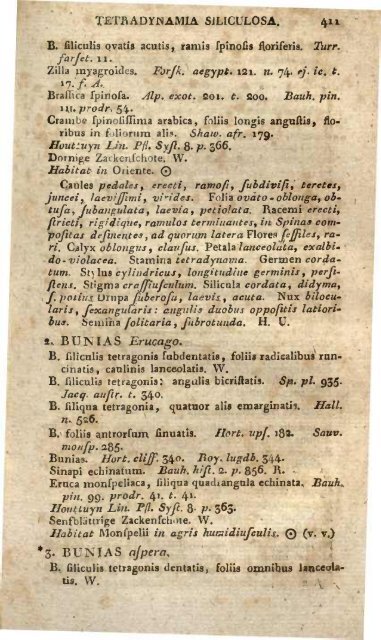 TETRADYNAMIA SILICULOSA. 411
B. ſiliculis ovatis acutis, ramis ſpinoſis floriferis. Turr.
farſet. 11.
Zilla myagroides. Forſk. aegypt. 121. n. 74. ej. ic. t.
17. f. A.
Braſſica ſpinoſa. Alp. exot. 201. t. 200. Bauh. pin.
111. prodr. 54.
Crambe ſpinoſiſſima arabica, foliis longis anguſtis, flo-
ribus in foliorum alis. Shaw. afr. 179.
Houttuyn Lin. Pfl. Syſt. 8. p. 366.
Dornige Zackenſchote. W.
Habitat in Oriente. ☉
Caules pedales, erecti, ramoſi, ſubdiviſi, teretes,
juncei, laeviſſimi, virides. Folia ovato-oblonga, ob-
tuſa, ſubangulata, laevia, petiolata. Racemi erecti,
ſtricti, rigidique, ramulos terminantes, in Spinas com-
poſitas deſinentes, ad quorum latera Flores ſeſſiles, ra-
ri. Calyx oblongus, clauſus. Petala lanceolata, exalbi-
do-violacea. Stamina tetradynama. Germen corda-
tum. Stylus cylindricus, longitudine germinis, perſi-
ſtens. Stigma craſſiuſculum. Silicula cordata, didyma,
ſ. potius Drupa ſuberoſa, laevis, acuta. Nux bilocu-
laris, ſexangularis: angulis duobus oppoſitis latiori-
bus. Semina ſolitaria, ſubrotunda. H. U.
2. BUNIAS Erucago.
B. ſiliculis tetragonis ſubdentatis, foliis radicalibus run-
cinatis, caulinis lanceolatis. W.
B. ſiliculis tetragonis: angulis bicriſtatis. Sp. pl. 935.
Jacq. auſtr. t. 340.
B. ſiliqua tetragonia, quatuor alis emarginatis. Hall.
n. 526.
B. foliis antrorſum ſinuatis. Hort. upſ. 182. Sauv.
monſp. 285.
Bunias. Hort. cliff. 340. Roy. lugdb. 344.
Sinapi echinatum. Bauh. hiſt. 2. p. 856. R.
Eruca monſpeliaca, ſiliqua quadrangula echinata. Bauh.
pin. 99. prodr. 41. t. 41.
Houttuyn Lin. Pfl. Syſt. 8. p. 363.
Senfblättrige Zackenſchote. W.
Habitat Monſpelii in agris humidiuſculis. ☉ (v. v.)
*3. BUNIAS aſpera.
B. ſiliculis tetragonis dentatis, foliis omnibus lanceola-
tis. W.